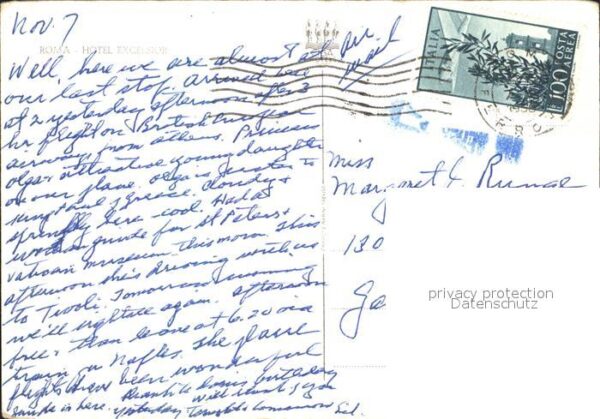 Nov. 7
ROMA - HOTEL EXCELSIOR
air
mail
Well, here we are almost at
our last stop. Arrived here
at 2 yesterday afternoon after 3
hr flight on British European
airways from Athens. Princess
Olga & attractive young daughter
on our plane. Olga is sister to
of Greece. Cloudy &
sprinkly here - cool. Had a
woman guide for St Peters &
Vatican museum this morn. This
afternoon she's driving with us
to Tivoli. Tomorrow morning
we'll sightsee again. afternoon
free & than leave at 6.20 via
train for Naples. The plane
flights have been wonderful
is here. yesterday
ITALIA
POSTA
AEREA
L. 100
Miss
Margaret L. Runge
130
Ga
privacy protection
Datenschutz